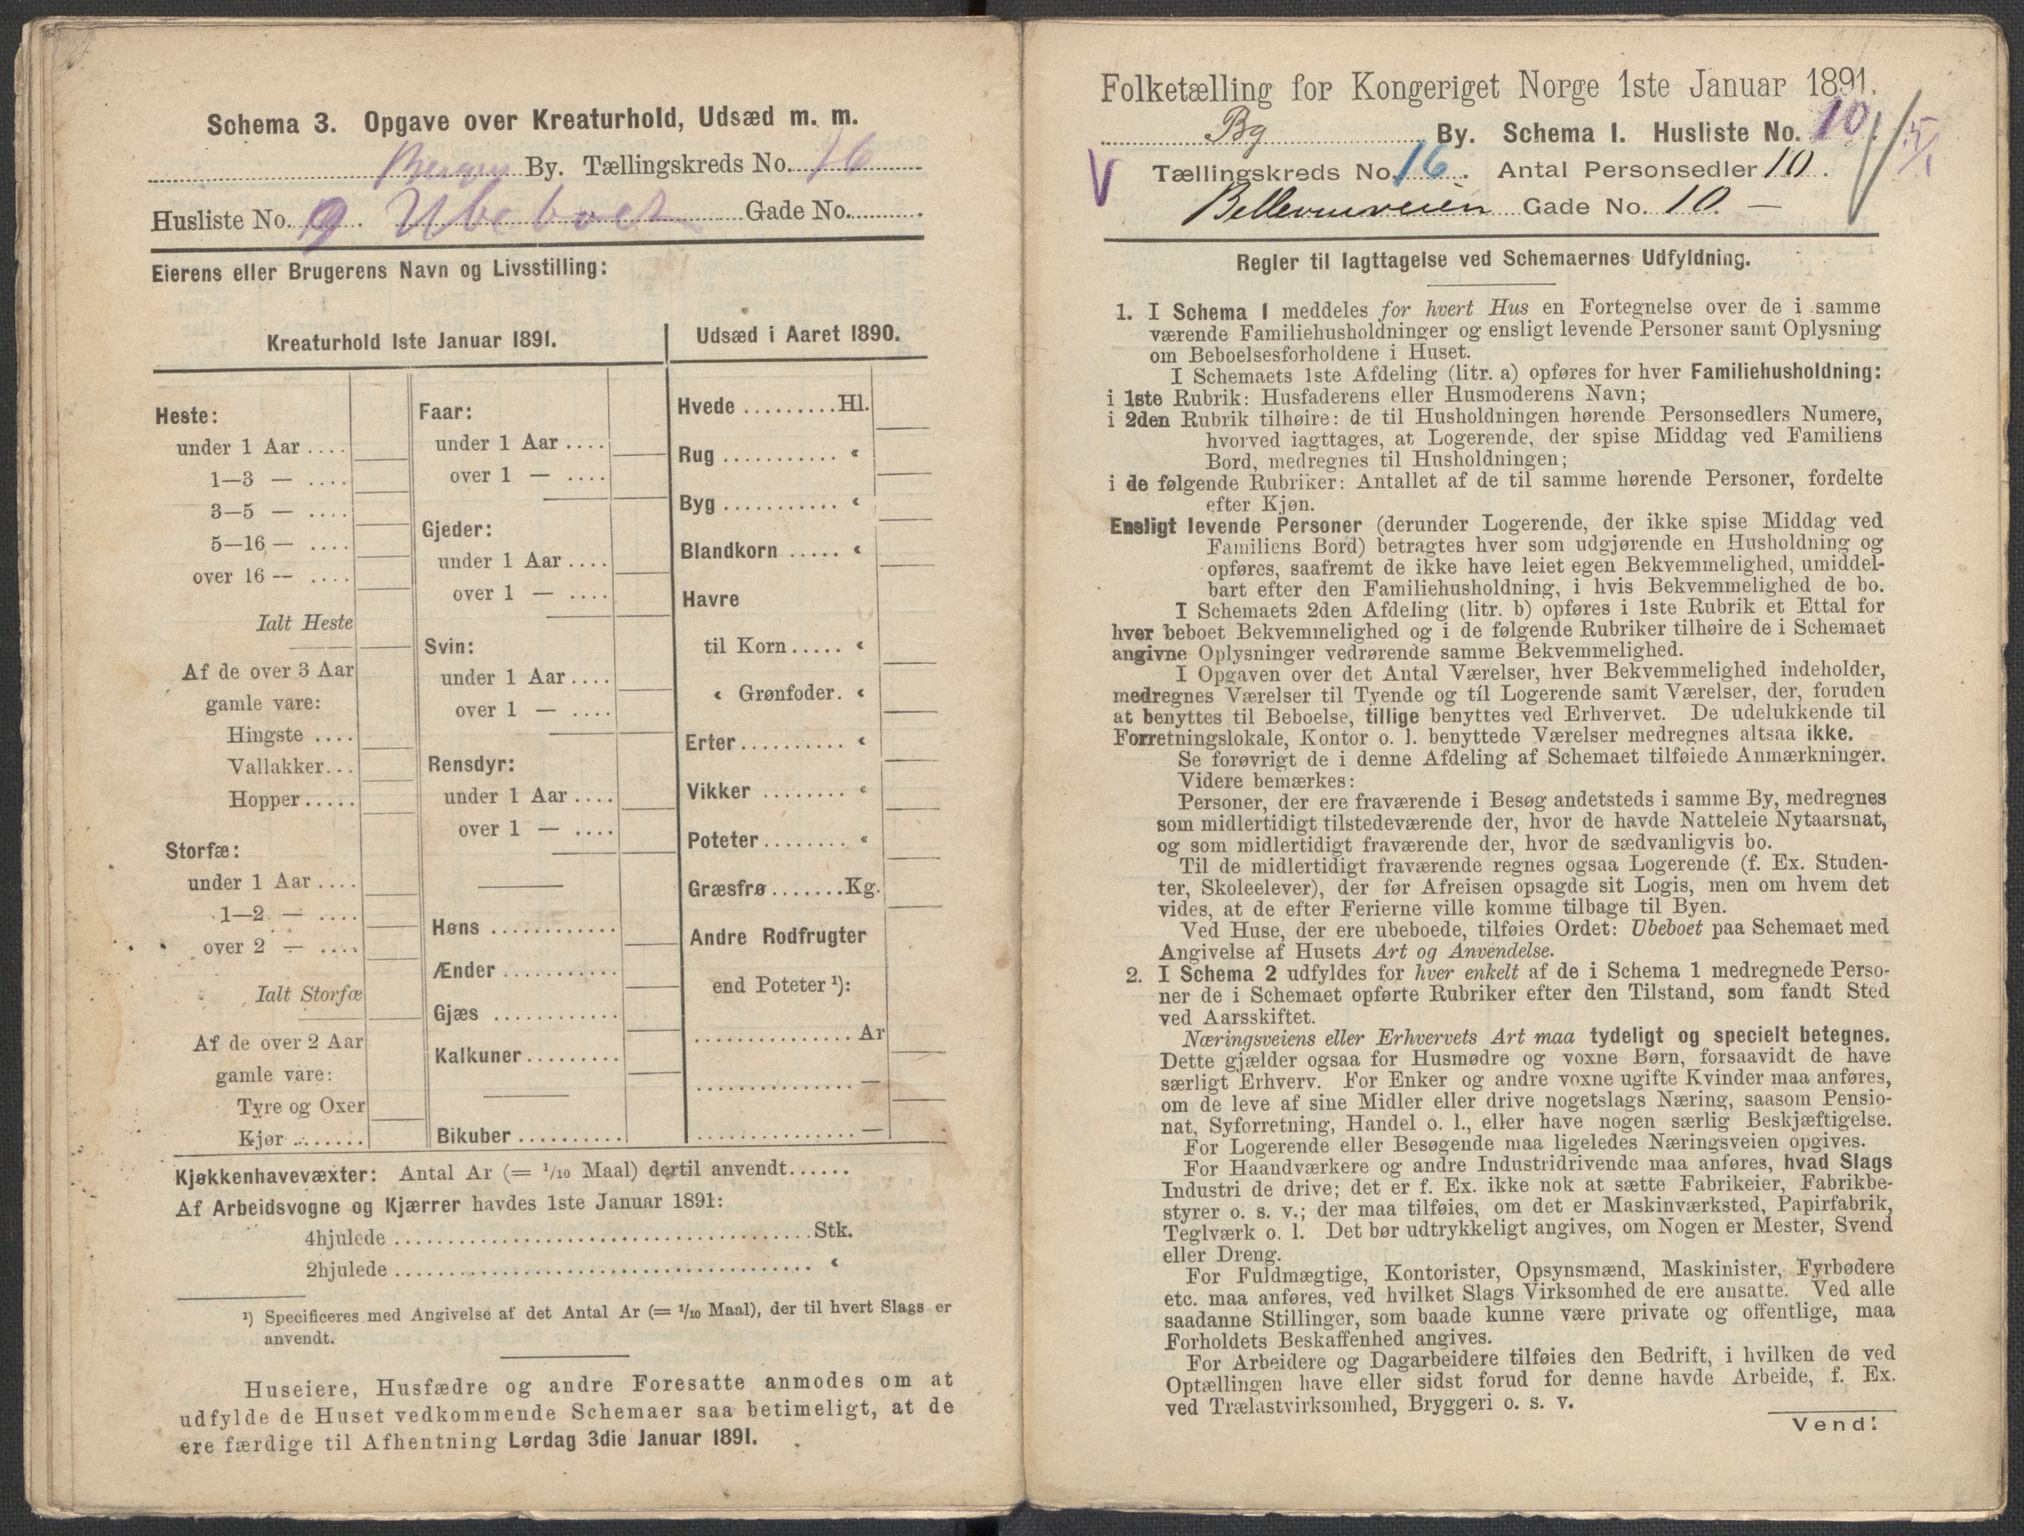 Schema 3. Opgave over Kreaturhold, Udsæd m. m.
Bergen By. Tællingskreds No. 16
Husliste No. 9. Ubeboet Gade No.
Eierens eller Brugerens Navn og Livsstilling:
Kreaturhold 1ste Januar 1891.
Heste:
under 1 Aar ....
1—3 — ....
3—5 — ....
5—16 — ....
over 16 — ....
Ialt Heste
Af de over 3 Aar
gamle vare:
Hingste ....
Vallakker...
Hopper.....
Storfæ:
under 1 Aar ....
1—2 — ....
over 2 — ....
Ialt Storfæ
Af de over 2 Aar
gamle vare:
Tyre og Oxer
Kjør .......
Faar:
under 1 Aar ....
over 1 — ....
Gjeder:
under 1 Aar ....
over 1 — ....
Svin:
under 1 Aar ....
over 1 — ....
Rensdyr:
under 1 Aar ....
over 1 — ....
Høns ............
Ænder ...........
Gjæs ............
Kalkuner.........
Bikuber ..........
Udsæd i Aaret 1890.
Hvede .........Hl.
Rug ........... «
Byg ........... «
Blandkorn ..... «
Havre
til Korn..... «
« Grønfoder. «
Erter.......... «
Vikker ........ «
Poteter........ «
Græsfrø.......Kg.
Andre Rodfrugter
end Poteter ¹):
............... Ar
............... —
............... —
Kjøkkenhavevæxter: Antal Ar (= 1/10 Maal) dertil anvendt......
Af Arbeidsvogne og Kjærrer havdes 1ste Januar 1891:
4hjulede ......................................Stk.
2hjulede ...................................... «
¹) Specificeres med Angivelse af det Antal Ar (= 1/10 Maal), der til hvert Slags er
anvendt.
Huseiere, Husfædre og andre Foresatte anmodes om at
udfylde de Huset vedkommende Schemaer saa betimeligt, at de
ere færdige til Afhentning Lørdag 3die Januar 1891.
Folketælling for Kongeriget Norge 1ste Januar 1891.
Bg By. Schema 1. Husliste No. 10. 5/1
V Tællingskreds No. 16. Antal Personsedler 10.
Bellevueveien Gade No. 10. —
Regler til Iagttagelse ved Schemaernes Udfyldning.
1. I Schema 1 meddeles for hvert Hus en Fortegnelse over de i samme
værende Familiehusholdninger og ensligt levende Personer samt Oplysning
om Beboelsesforholdene i Huset.
I Schemaets 1ste Afdeling (litr. a) opføres for hver Familiehusholdning:
i 1ste Rubrik: Husfaderens eller Husmoderens Navn;
i 2den Rubrik tilhøire: de til Husholdningen hørende Personsedlers Numere,
hvorved iagttages, at Logerende, der spise Middag ved Familiens
Bord, medregnes til Husholdningen;
i de følgende Rubriker: Antallet af de til samme hørende Personer, fordelte
efter Kjøn.
Ensligt levende Personer (derunder Logerende, der ikke spise Middag ved
Familiens Bord) betragtes hver som udgjørende en Husholdning og
opføres, saafremt de ikke have leiet egen Bekvemmelighed, umiddel-
bart efter den Familiehusholdning, i hvis Bekvemmelighed de bo.
I Schemaets 2den Afdeling (litr. b) opføres i 1ste Rubrik et Ettal for
hver beboet Bekvemmelighed og i de følgende Rubriker tilhøire de i Schemaet
angivne Oplysninger vedrørende samme Bekvemmelighed.
I Opgaven over det Antal Værelser, hver Bekvemmelighed indeholder,
medregnes Værelser til Tyende og til Logerende samt Værelser, der, foruden
at benyttes til Beboelse, tillige benyttes ved Erhvervet. De udelukkende til
Forretningslokale, Kontor o. l. benyttede Værelser medregnes altsaa ikke.
Se forøvrigt de i denne Afdeling af Schemaet tilføiede Anmærkninger.
Videre bemærkes:
Personer, der ere fraværende i Besøg andetsteds i samme By, medregnes
som midlertidigt tilstedeværende der, hvor de havde Natteleie Nytaarsnat,
og som midlertidigt fraværende der, hvor de sædvanligvis bo.
Til de midlertidigt fraværende regnes ogsaa Logerende (f. Ex. Studen-
ter, Skoleelever), der før Afreisen opsagde sit Logis, men om hvem det
vides, at de efter Ferierne ville komme tilbage til Byen.
Ved Huse, der ere ubeboede, tilføies Ordet: Ubeboet paa Schemaet med
Angivelse af Husets Art og Anvendelse.
2. I Schema 2 udfyldes for hver enkelt af de i Schema 1 medregnede Perso-
ner de i Schemaet opførte Rubriker efter den Tilstand, som fandt Sted
ved Aarsskiftet.
Næringsveiens eller Erhvervets Art maa tydeligt og specielt betegnes.
Dette gjælder ogsaa for Husmødre og voxne Børn, forsaavidt de have
særligt Erhverv. For Enker og andre voxne ugifte Kvinder maa anføres,
om de leve af sine Midler eller drive nogetslags Næring, saasom Pensio-
nat, Syforretning, Handel o. l., eller have nogen særlig Beskjæftigelse.
For Logerende eller Besøgende maa ligeledes Næringsveien opgives.
For Haandværkere og andre Industridrivende maa anføres, hvad Slags
Industri de drive; det er f. Ex. ikke nok at sætte Fabrikeier, Fabrikbe-
styrer o. s. v.; der maa tilføies, om det er Maskinværksted, Papirfabrik,
Teglværk o. l. Det bør udtrykkeligt angives, om Nogen er Mester, Svend
eller Dreng.
For Fuldmægtige, Kontorister, Opsynsmænd, Maskinister, Fyrbødere
etc. maa anføres, ved hvilket Slags Virksomhed de ere ansatte. Ved alle
saadanne Stillinger, som baade kunne være private og offentlige, maa
Forholdets Beskaffenhed angives.
For Arbeidere og Dagarbeidere tilføies den Bedrift, i hvilken de ved
Optællingen have eller sidst forud for denne havde Arbeide, f. Ex.
ved Trælastvirksomhed, Bryggeri o. s. v.
Vend!